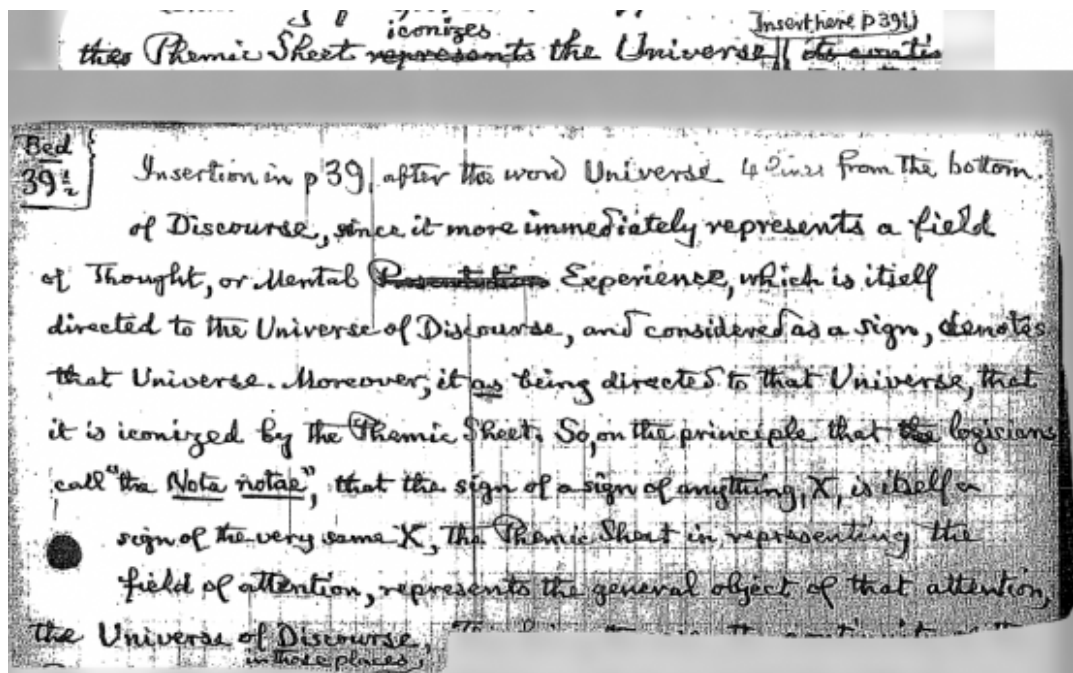 iconizes
Insert here p 39½
the Phemic Sheet represents the Universe
Bed
39½
Insertion in p 39 after the word Universe 4 lines from the bottom.
of Discourse, since it more immediately represents a field
of Thought, or Mental Experience, which is itself
directed to the Universe of Discourse, and considered as a sign, denotes
that Universe. Moreover, it as being directed to that Universe, that
it is iconized by the Phemic Sheet. So, on the principle that the logicians
call "the Nota notae", that the sign of a sign of anything, X, is itself a
sign of the very same X, the Phemic Sheet in representing the
field of attention, represents the general object of that attention,
the Universe of Discourse.
in those places,